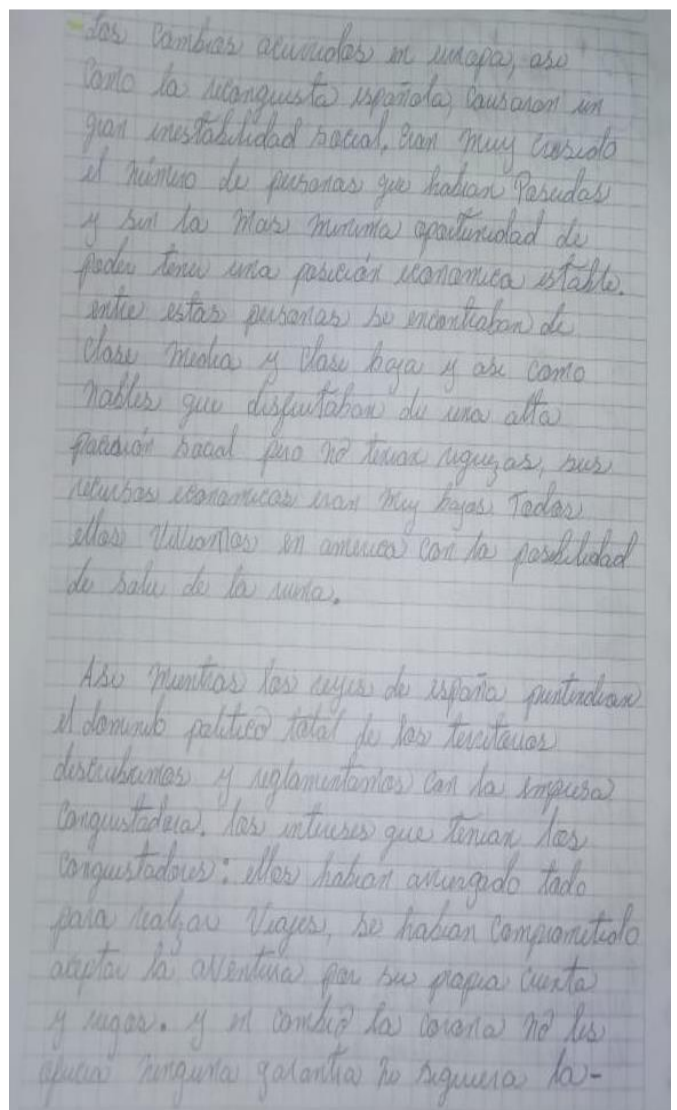 - Los cambios ocurridos en europa, asi
como la reconquista española, causaron un
gran inestabilidad social, eran muy crecido
el número de personas que habian Pasudas
y sin la mas minima oportunidad de
poder tener una posición economica estable.
entre estas personas se encontraban de
clase media y clase baja y asi como
nobles que disfrutaban de una alta
posición social pero no tenian riquezas, sus
recursos economicos eran muy bajos. Todos
ellos en america con la posibilidad
de salir de la ruina.
Asi mientras los reyes de españa pretendian
el dominio politico total de los territorios
y reglamentarios con la empresa
conquistadora, los intereses que tenian los
conquistadores: ellos habian arriesgado todo
para realizar viajes, se habian comprometido
aceptar la aventura por su propia cuenta
y riesgo. y en cambio la corona no les
ofrecia ninguna garantia ni siquiera la-